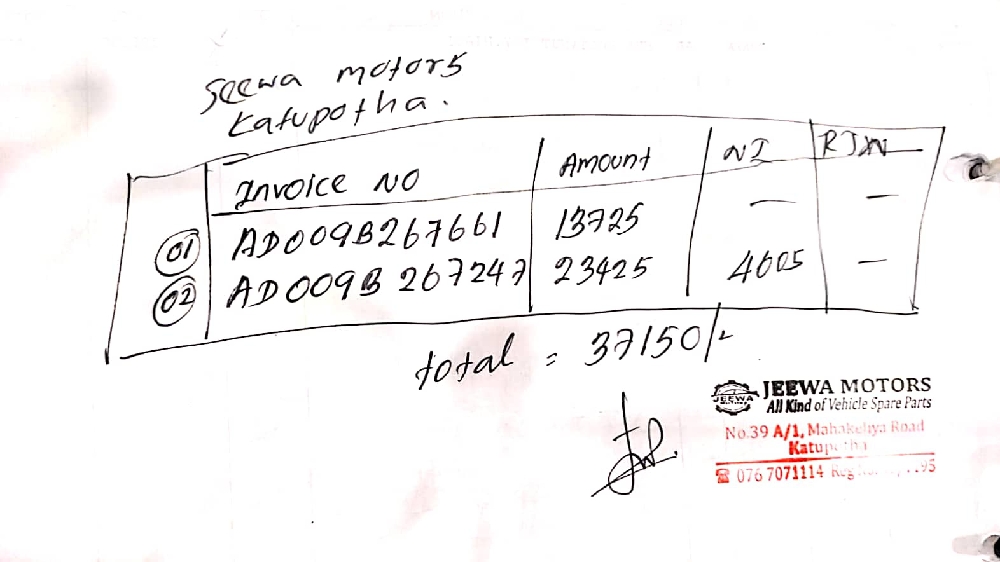 Jeewa motors
Katupotha.
Invoice NO Amount NI RTN
01 AD009B267661 13725 — —
02 AD009B 267247 23425 4605 —
total = 37150/-
JEEWA MOTORS
JEEWA
All Kind of Vehicle Spare Parts
No.39 A/1, Mahakeliya Road
Katupotha
076 7071114